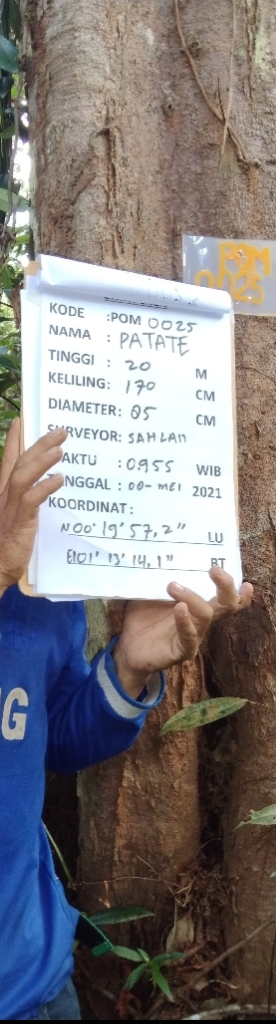 POM
0025
KODE :POM 0025
NAMA : PATATE
TINGGI : 20 M
KELILING: 170 CM
DIAMETER: 85 CM
SURVEYOR: SAHLAN
WAKTU : 0955 WIB
TANGGAL : 00-MEI 2021
KOORDINAT:
N00° 19' 57,2" LU
E101° 13' 14,1" BT